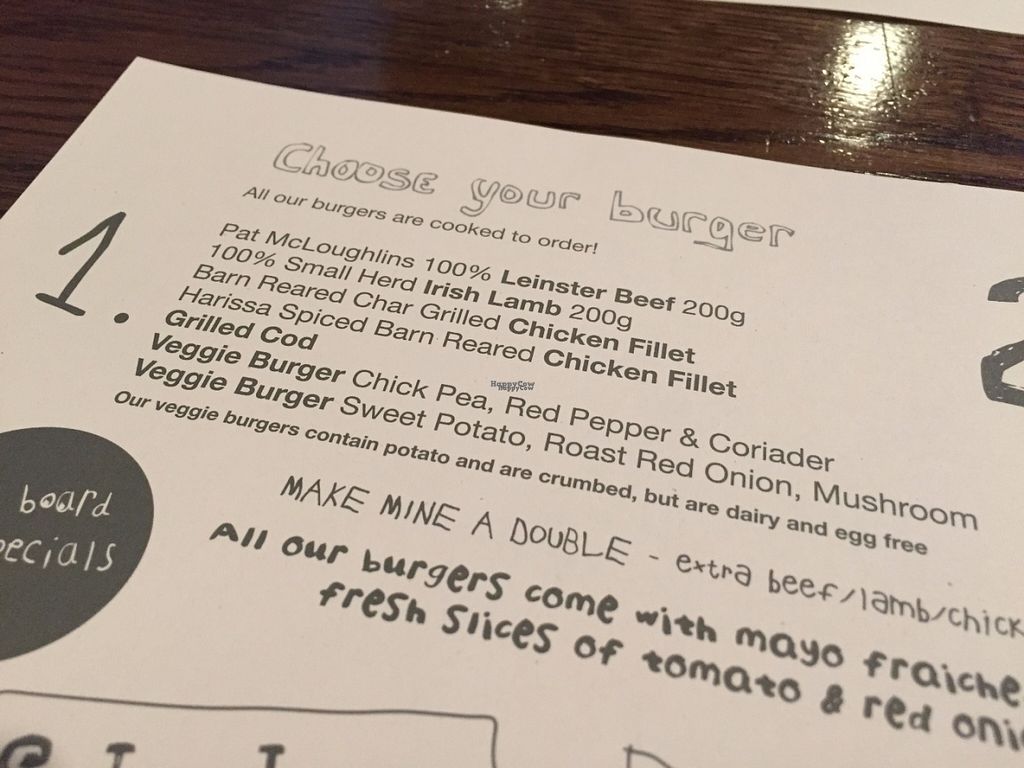 Choose your burger
All our burgers are cooked to order!
1.
Pat McLoughlins 100% Leinster Beef 200g
100% Small Herd Irish Lamb 200g
Barn Reared Char Grilled Chicken Fillet
Harissa Spiced Barn Reared Chicken Fillet
Grilled Cod
Veggie Burger Chick Pea, Red Pepper & Coriader
Veggie Burger Sweet Potato, Roast Red Onion, Mushroom
Our veggie burgers contain potato and are crumbed, but are dairy and egg free
MAKE MINE A DOUBLE - extra beef/lamb/chick
All our burgers come with mayo fraiche
fresh slices of tomato & red oni
board
pecials
2
HappyCow
HappyCow